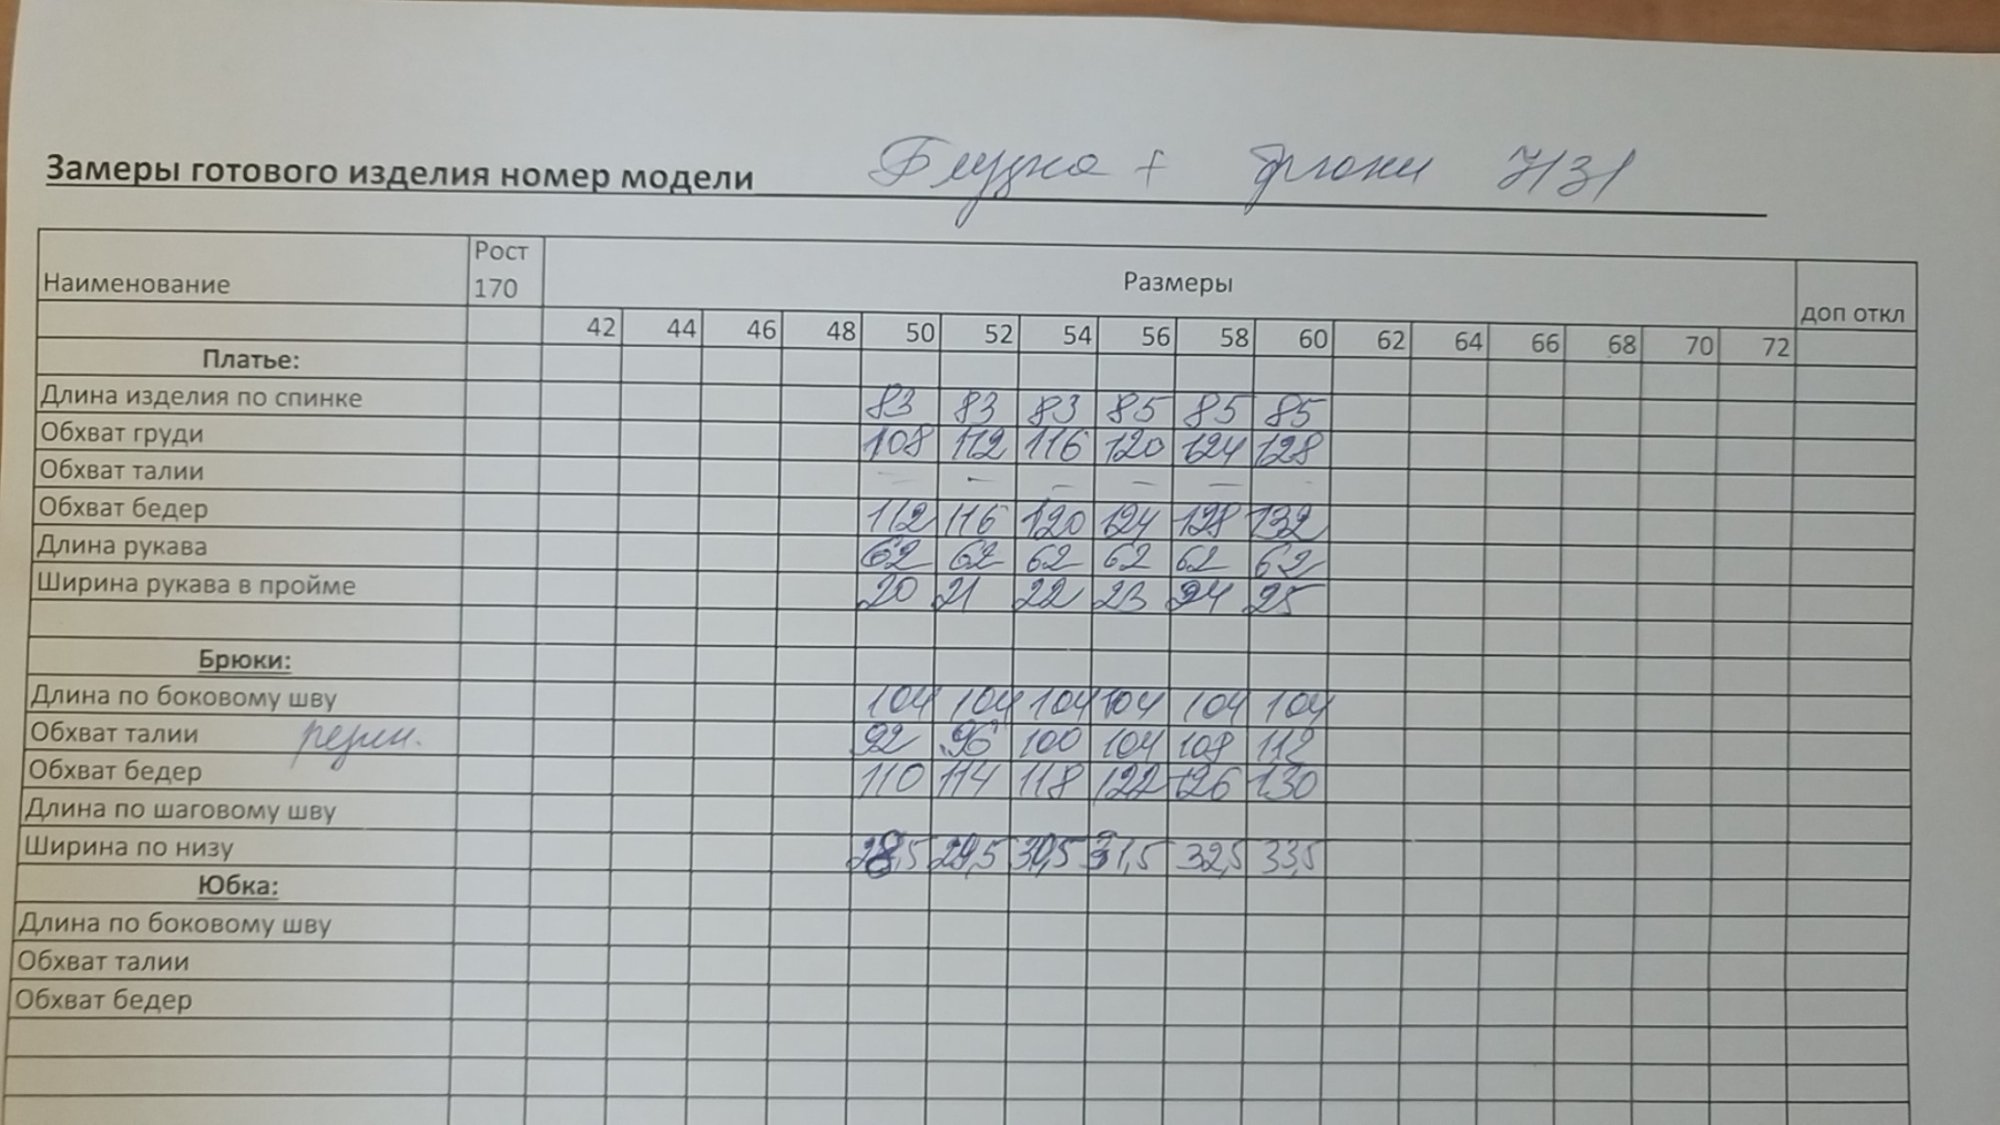 Замеры готового изделия номер модели Блузка + брюки 7131
Рост
Наименование 170 Размеры доп откл
42 44 46 48 50 52 54 56 58 60 62 64 66 68 70 72
Платье:
Длина изделия по спинке 83 83 83 85 85 85
Обхват груди 108 112 116 120 124 128
Обхват талии – – – – –
Обхват бедер 112 116 120 124 128 132
Длина рукава 62 62 62 62 62 62
Ширина рукава в пройме 20 21 22 23 24 25
Брюки:
Длина по боковому шву 104 104 104 104 104 104
Обхват талии резин. 92 96 100 104 108 112
Обхват бедер 110 114 118 122 126 130
Длина по шаговому шву
Ширина по низу 28,5 29,5 30,5 31,5 32,5 33,5
Юбка:
Длина по боковому шву
Обхват талии
Обхват бедер